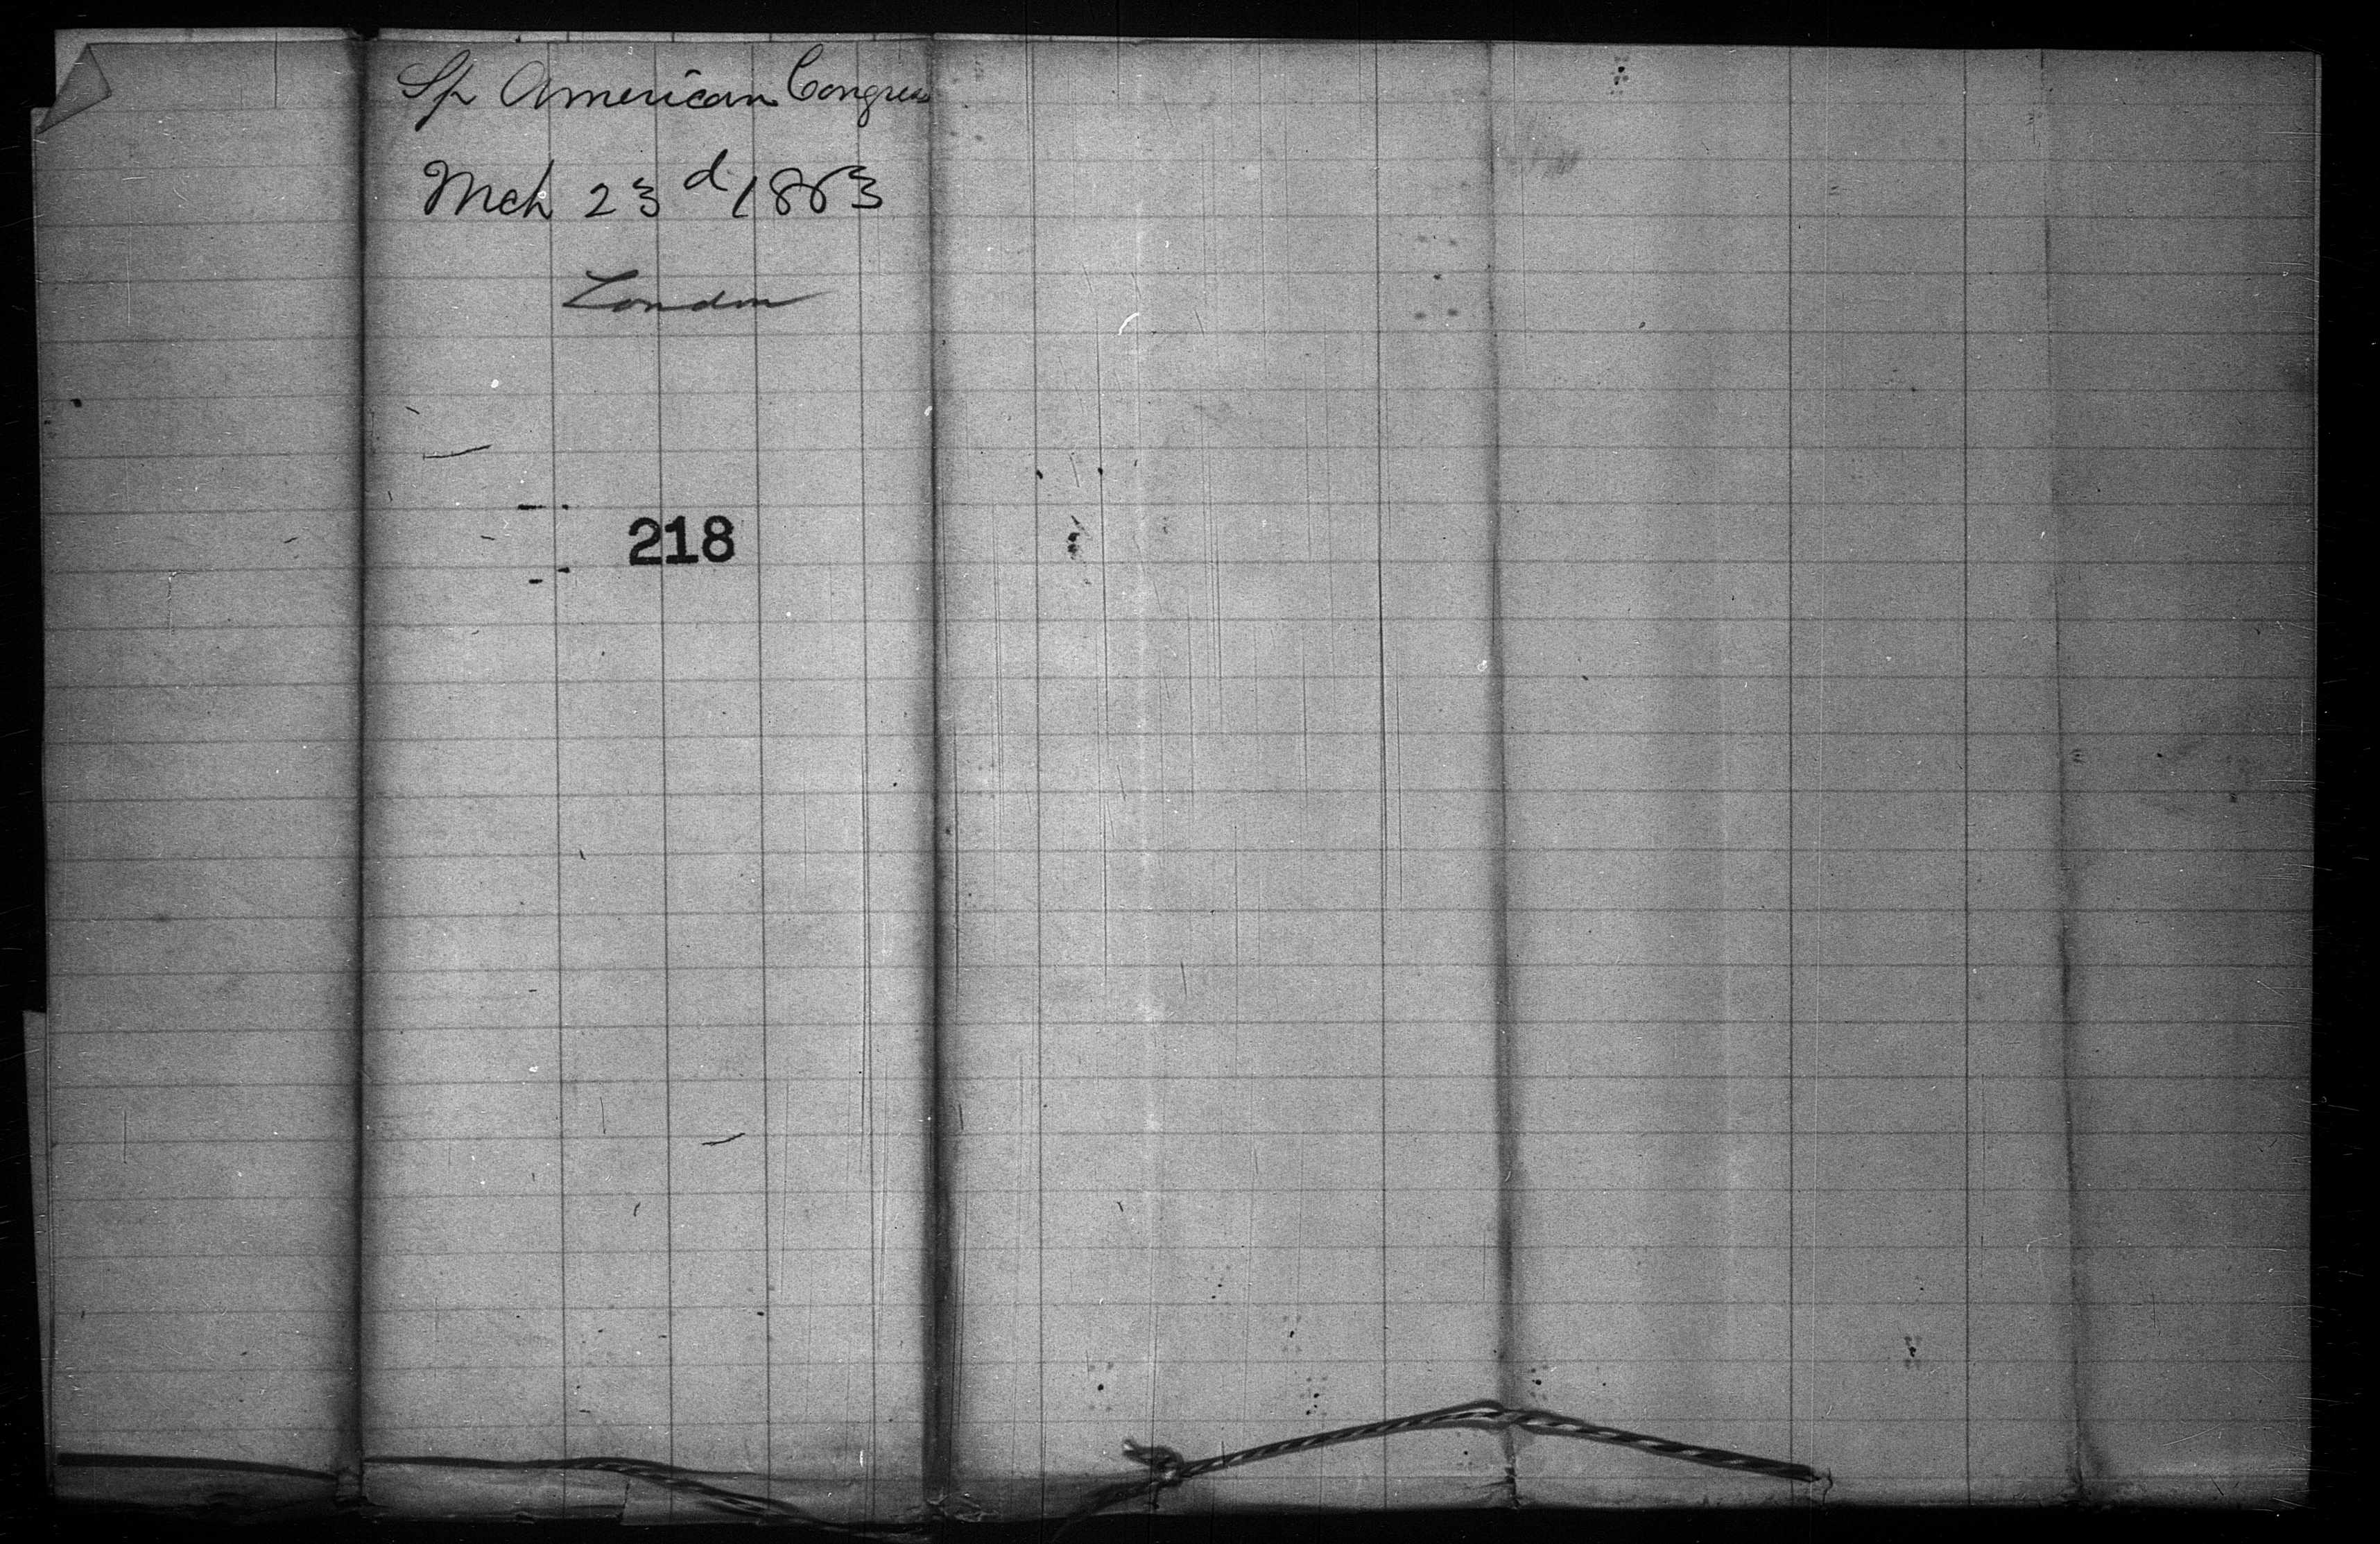 Sp American Congress
Mch 23d 1863
London
218